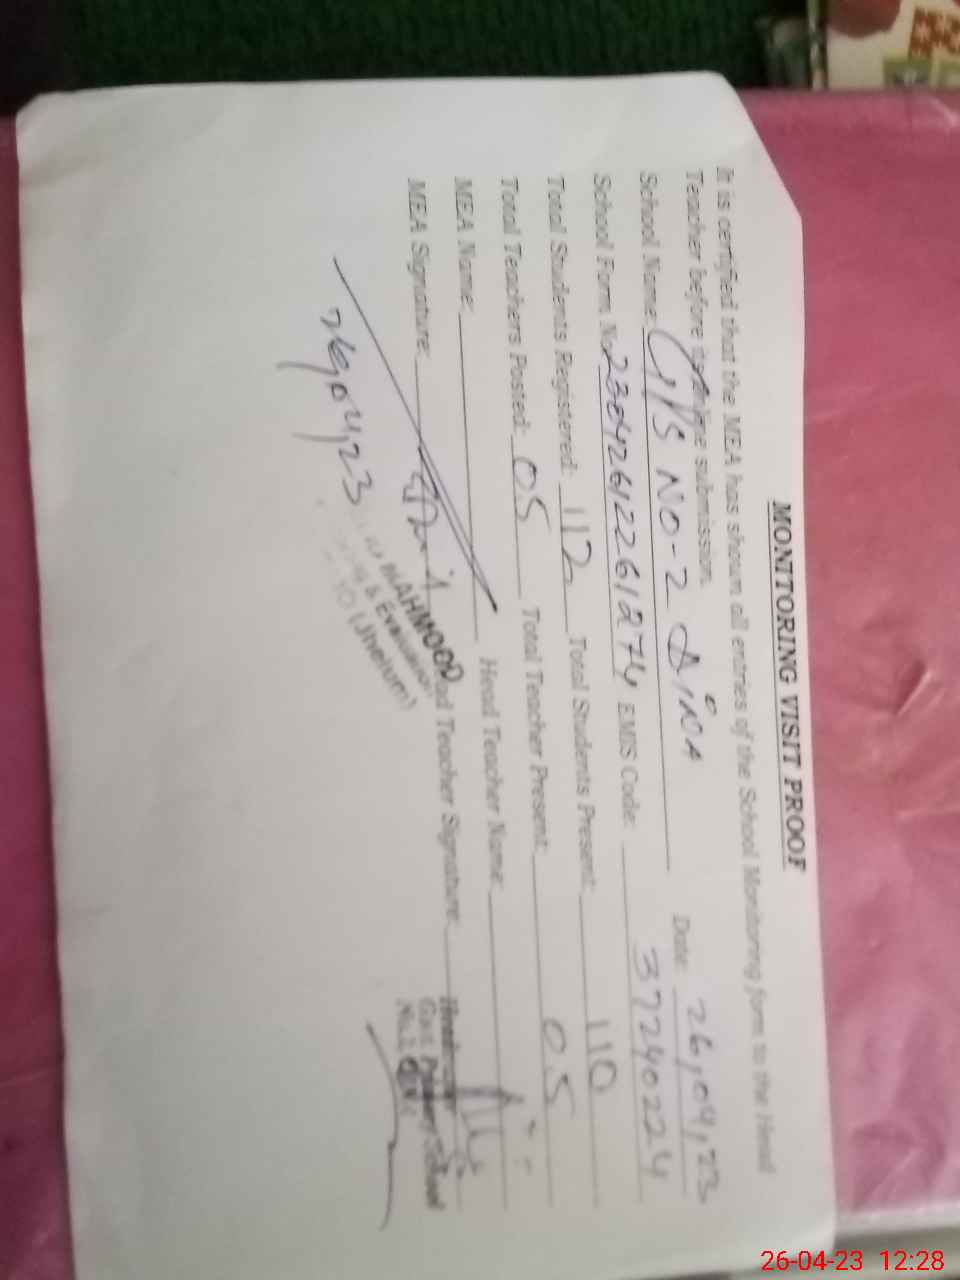 MONITORING VISIT PROOF
It is certified that the MEA has shown all entries of the School Monitoring form to the Head
Teacher before submission.
School Name: GPS NO-2 DiNA Date: 26,04,23
School Form No EMIS Code: 37240224
Total Students Registered: 112 Total Students Present: 110
Total Teachers Posted: 05 Total Teacher Present: 05
MEA Name: Head Teacher Name:
MEA Signature: Teacher Signature:
MAHMOOD
& Evaluation
(Jhelum)
26,04,23
Govt. Primary School
No.2 DINA
26-04-23 12:28